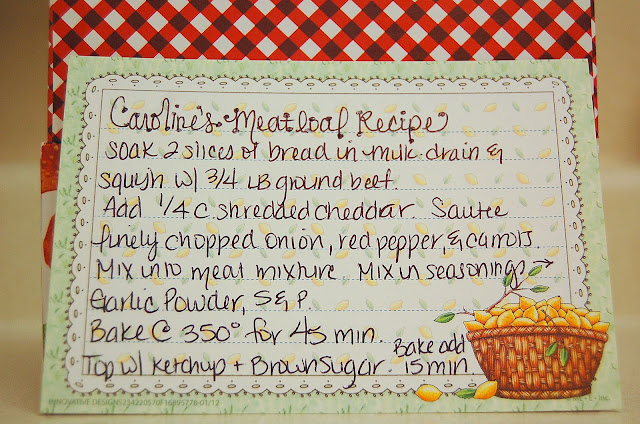 Caroline's Meatloaf Recipe
Soak 2 slices of bread in milk. drain &
squish w/ 3/4 LB ground beef.
Add 1/4 c. shredded cheddar. Sautee
finely chopped onion, red pepper, & carrots.
Mix into meat mixture. Mix in seasonings →
Garlic Powder, S & P.
Bake @ 350° for 45 min.
Top w/ ketchup + Brown Sugar. Bake add
15 min.